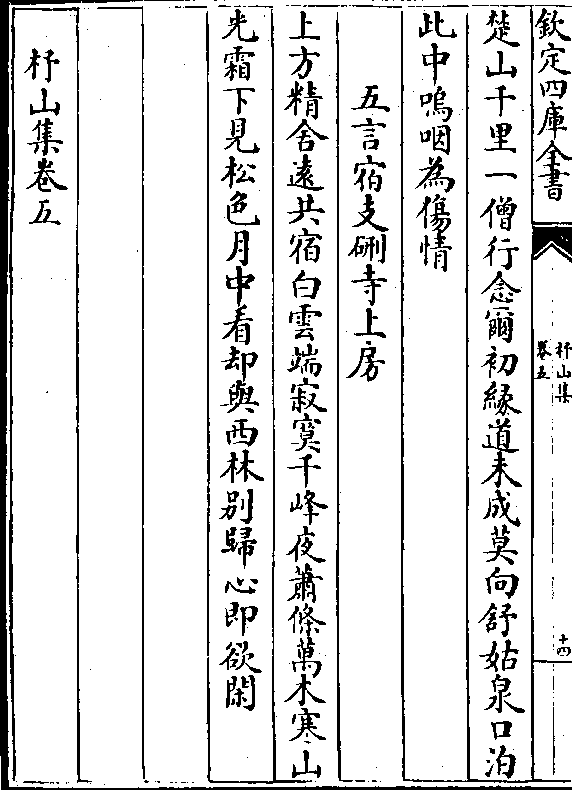 欽定四庫全書
杼山集
卷五
十四
楚山千里一僧行念爾初緣道未成莫向舒姑泉口泊
此中嗚咽為傷情
五言宿支硎寺上房
上方精舍遠共宿白雲端寂寞千峰夜蕭條萬木寒山
光霜下見松色月中看却與西林別歸心即欲闌
杼山集卷五